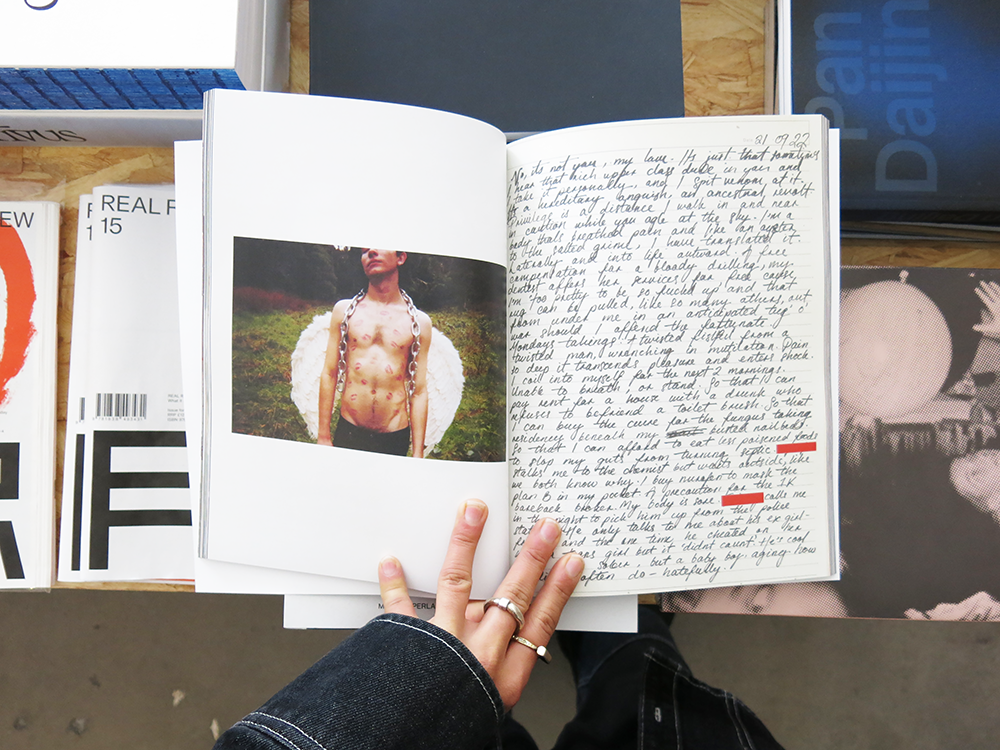 EW
REAL
15
pan
Daijin
09 22
No, its not you, my love. It's just that sometimes
hear that rich upper class dude in you and
take it personally, and I spit venom at it.
a hereditary anguish, an ancestral revolt
Privilege is at distance. I walk in and near
in caution while you ogle at the sky. I'm a
body thats breathed pain and like
to the salted grime, I have translated it.
Laterally and into life outward of free
compensation for a bloody drilling, my
dentist offers her services for cause
I'm too pretty to be so fucked up and that
rug can be pulled, like so many others, out
from under me in an anticipated tug o'
war should I offend the fortunate.
Mondays takings: A twisted fistful from a
twisted man, wrenching in mutilation. Pain
so deep it transcends pleasure and enters shock.
I coil into myself for the next 2 mornings.
Unable to breath, or stand. So that I can
pay rent for a house with a drunk who
refuses to befriend a toilet brush. So that
I can buy the cure for the fungus taking
residency beneath my busted nail bed.
So that I can afford to eat less poisoned foods
to stop my guts from turning septic.
stalks me to the chemist but waits outside, like
we both know why. I buy nurofen to mask the
plan B in my pocket of precaution for the 1K
bareback broker. My body is sore. calls me
in the night to pick him up from the police
He only talks to me about his ex girl-
and the one time he cheated on her
girl but it 'didn't count'. He's cool
sober, but a baby boy aging how
often do - hatefully.